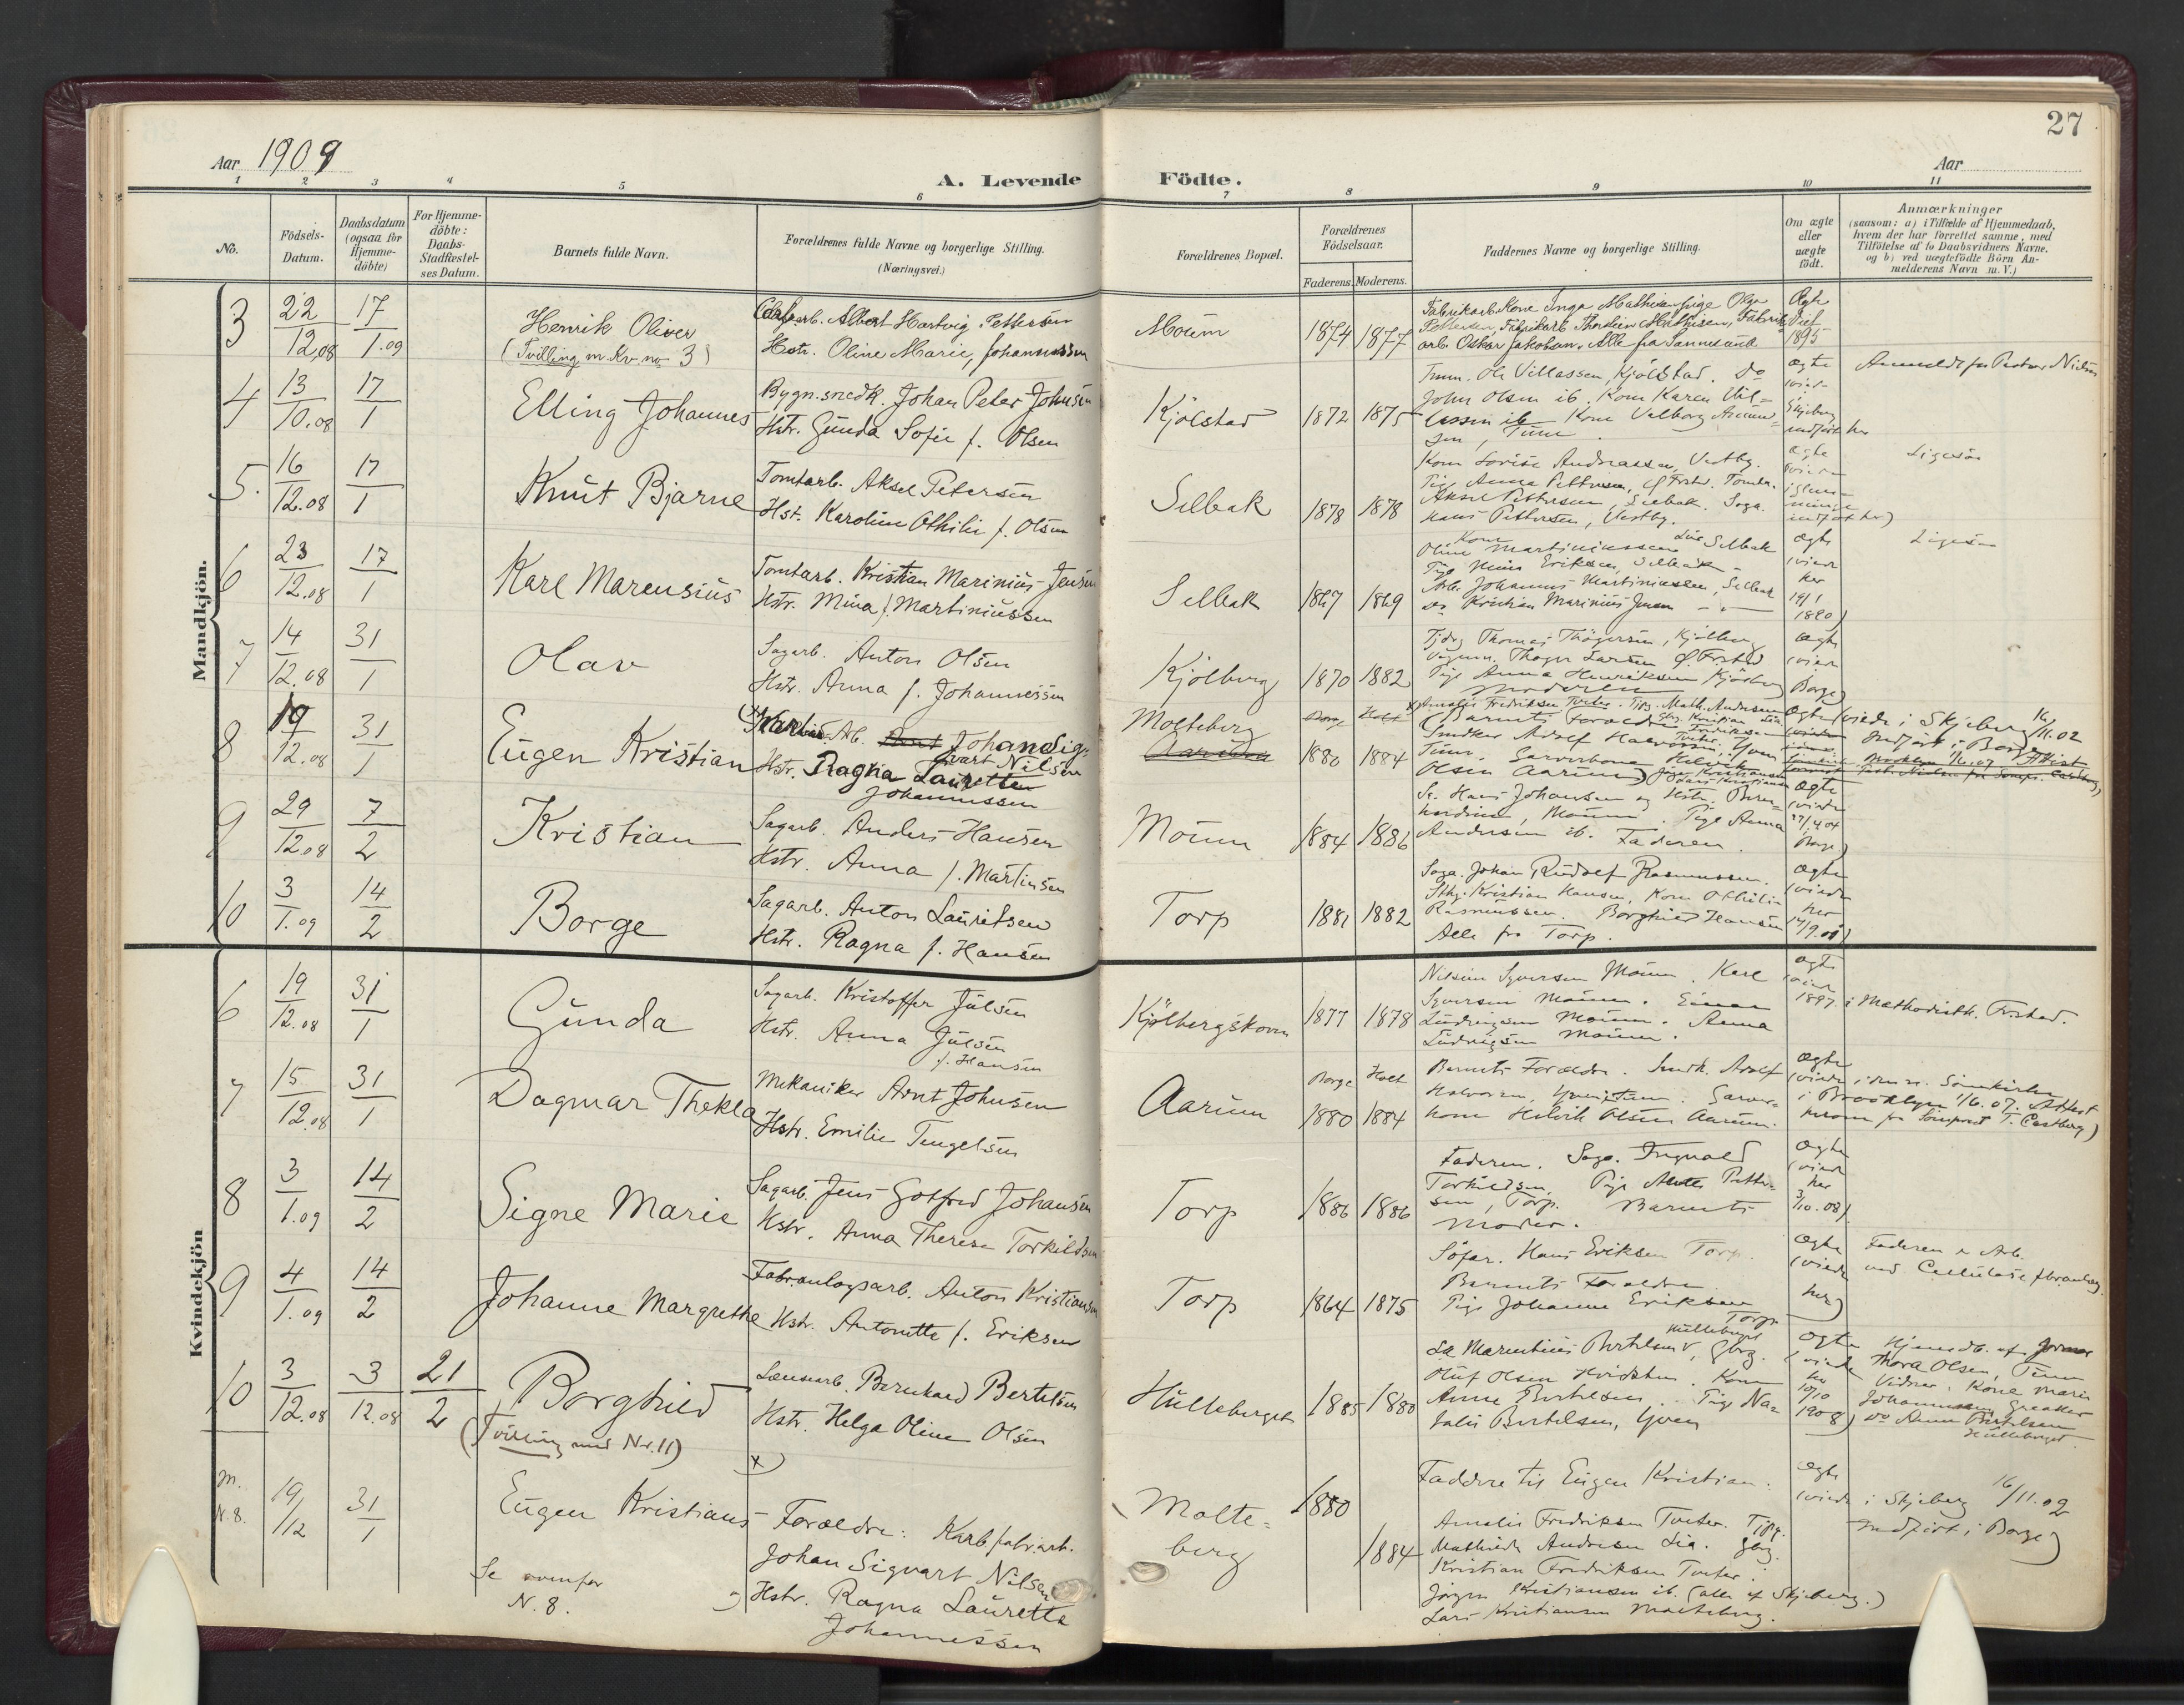 27
Aar 1909
A. Levende Födte.
Aar
1 2 3 4 5 6 7 8 9 10 11
No.
Födsels-
Datum.
Daabsdatum
(ogsaa for
Hjemme-
döbte)
For Hjemme-
döbte:
Daabs-
Stadfæstel-
ses Datum.
Barnets fulde Navn.
Forældrenes fulde Navne og borgerlige Stilling.
(Næringsvei.)
Forældrenes Bopæl.
Forældrenes
Födselsaar.
Faderens. Moderens.
Faddernes Navne og borgerlige Stilling.
Om ægte
eller
uægte
födt.
Anmærkninger
(saasom: a) i Tilfælde af Hjemmedaab,
hvem der har forrettet samme, med
Tilföielse af to Daabsvidners Navne.
og b) ved uægtefödte Börn An-
melderens Navn m. V.)
Mandkjön.
3 22/12.08 17/1.09
Henrik Oliver
(Tvilling m. Kv. no 3)
arb. Albert Hartvig Pettersen
Hstr. Oline Marie, Johannessen
Moum 1874 1877
Fabrikarb. Kone Inga Mathisen, Pige Olga
Pettersen, Fabrikarb. Thorleiv Mathisen, Fabrik
arb. Oskar Jakobsen. Alle fra Sannesund
Ægte
Viet
1895
4 13/10.08 17/1
Elling Johannes
Bygn.snedk. Johan Peter Johnsen
Hstr. Gunda Sofie f. Olsen
Kjölstad 1872 1875
Tmm. Ole Villassen, Kjölstad. Do
John Olsen ib. Kone Karen Vil-
lassen ib. Kone Valborg
sen, Tune.
ægte
viede
i
Skjeberg
indfört her
Anmeldt fra Pastor Nielsen
5. 16/12.08 17/1
Knut Bjarne
Tomtarb. Aksel Petersen
Hst. Karoline Othilie f. Olsen
Selbak 1878 1878
Kone Lovise Andreassen, Vestby.
Pige Anna Pettersen, Fr.stad. Tomta.
Aksel Pettersen, Selbak. Saga.
Hans Pettersen, Vestby.
ægte
viede
i Glem-
minge
indfört her)
Ligesaa
6 23/12.08 17/1
Karl Marensius
Tomtarb. Kristian Marinius Jensen
Hstr. Mina f. Martiniussen
Selbak 1867 1869
Kone
Oline Martiniussen Selbak
Pige Mina Eriksen, Selbak
Arb. Johannes Martiniussen, Selbak
do Kristian Marinius Jensen
ægte
(viede
her
19/1
1890)
Ligesaa
7 14/12.08 31/1
Olav
Sagarb. Anton Olsen
Hstr. Anna f. Johannessen
Kjölberg 1870 1882
Tjdrg Thomas Thögersen, Kjölberg
Vognm. Thöger Larsen Fr.stad
Pige Anna Henriksen Kjölberg
Moderen
ægte
(viede
i
Borge)
8 19/12.08 31/1
Eugen Kristian
Arb. Arnt Johan Sig-
vart Nilsen
Hstr. Ragna Lauretta
Johannessen
Molteberg
Aarum
Borge Holt
1880 1884
x) Amalie Fredriksen Tveter. Tjpg. Math. Andersen
Barnets Forældre
Snedker Adolf Halvorsen, Yven
Tune. Garverkone Helvik
Olsen Aarum
ægte (viede i Skjeberg 16/11.02
Indfört i Borge)
9 29/12.08 7/2
Kristian
Sagarb. Anders Hansen
Hstr. Anna f. Martinsen
Moum 1884 1886
Sa. Hans Johansen og Hstr. Beren-
hardine, Moum. Pige Anna
Andersen ib. Faderen.
ægte
(viede
Borge)
10 3/1.09 14/2
Borge
Sagarb. Anton Lauritsen
Hstr. Ragna f. Hansen
Torp 1881 1882
Saga. Johan Rudolf Rasmussen.
Sthg. Kristian Hansen, Kone Othilie
Rasmussen. Borghild Hansen
Alle fra Torp.
ægte
(viede
her
Kvindekjön
6 19/12.08 31/1
Gunda
Sagarb. Kristoffer Julsen
Hstr. Anna Julsen
f. Hansen
Kjölbergskoven 1877 1878
Nilsine Syversen Moum. Karl
Syversen Moum. Einar
Ludvigsen Moum. Anna
Ludvigsen Moum.
ægte
viede
1897. i Methodistk. Fr.stad.
7 15/12.08 31/1
Dagmar Thekla
Mekaniker Arnt Johnsen
Hstr. Emilie Tengelsen
Aarum
Borge Holt
1880 1884
Barnets Forældre. Snedk. Adolf
Halvorsen, Yven, Tune. Garver-
kone Helvik Olsen Aarum.
ægte
(viede i den n. Sömkirke
i Brooklyn 1/6.07. Attest
herom fra Sömprest T. Castberg)
8 3/1.09 14/2
Signe Marie
Sagarb. Jens Gotfred Johansen
Hstr. Anna Therese Torkildsen
Torp 1886 1886
Faderen. Saga. Ingvald
Torkildsen, Pige Petter-
sen, Torp. Barnets
Moder.
ægte
(viede
her
3/10.08)
9 4/1.09 14/2
Johanne Margrethe
Fabr.anlægsarb. Anton Kristiansen
Hstr. Antonette f. Eriksen
Torp 1864 1875
Söfar. Hans Eriksen Torp.
Barnets Forældre
Pige Johanne Eriksen
Torp
ægte
(viede
her)
Faderen er Arb.
ved Cellulosefbranlæg.
10 3/12.08 3/12.08 21/2
Borghild
(Tvilling med Nr. 11)
Lænsearb. Bernhard Bertelsen
Hstr. Helga Oline Olsen
Hulleberget 1885 1880
Hulleberget
Sa Marentius Bertelsen, Gbrg.
Oluf Olsen Hvidsten. Kone
Anna Bertelsen. Pige Na-
talie Bertelsen, Yven
ægte
(viede
her
10/10
1908)
Hjemmedb. af Jormor
Thora Olsen, Tune
Vidner. Kone Marie
Johannessen Greaker
do Anna Bertelsen
Hulleberget.
M.
N. 8. 19/12 31/1
Eugen Kristian
Se ovenfor
N. 8.
x)
Forældre: Karbfabr.arb.
Johan Sigvart Nilsen
Hstr. Ragna Lauretta
Johannessen
Molte-
berg
1880
1884
Faddere til Eugen Kristian.
Amalie Fredriksen Tveter. Tjpg.
Mathilde Andersen Lia. Gbrg.
Kristian Fredriksen Tveter.
Jörgen Kristiansen ib. (alle af Skjeberg.)
Lars Kristiansen Molteberg.
ægte
(viede i Skjeberg 16/11.02
Indfört i Borge)